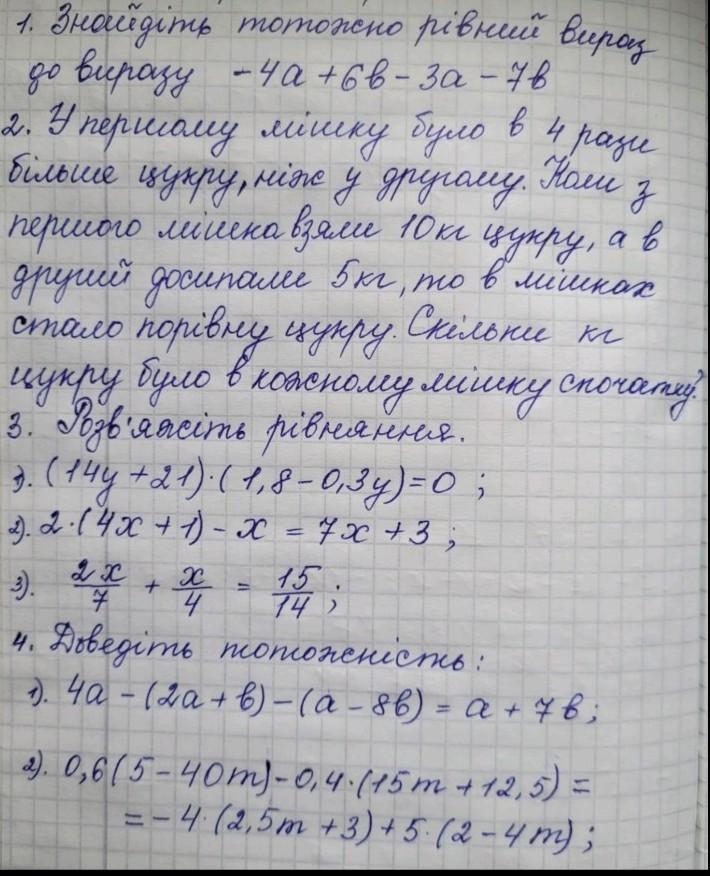 1. Знайдіть тотожно рівний вираз
до виразу -4a + 6b - 3a - 7b
2. У першому мішку було в 4 рази
більше цукру, ніж у другому. Коли з
першого мішка взяли 10 кг цукру, а в
другий досипали 5 кг, то в мішках
стало порівну цукру. Скільки кг
цукру було в кожному мішку спочатку?
3. Розв'яжіть рівняння.
1). (14y + 21)·(1,8 - 0,3y) = 0 ;
2). 2·(4x + 1) - x = 7x + 3 ;
3). 2x/7 + x/4 = 15/14 ;
4. Доведіть тотожність:
1). 4a - (2a + b) - (a - 8b) = a + 7b ;
2). 0,6(5 - 40m) - 0,4·(15m + 12,5) =
= -4·(2,5m + 3) + 5·(2 - 4m) ;